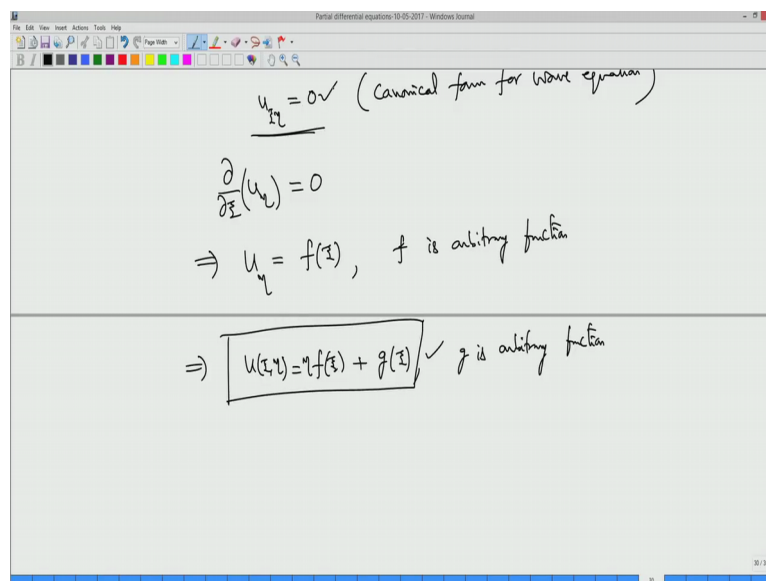 Partial differential equations-10-05-2017 - Windows Journal
File Edit View Insert Actions Tools Help
Page Width
B I
u_{ξη} = 0 ✓ (canonical form for wave equation)
∂/∂ξ (u_η) = 0
⇒ u_η = f(ξ), f is arbitrary function
⇒ u(ξ,η) = η f(ξ) + g(ξ) ✓ g is arbitrary function
30 / 3
30